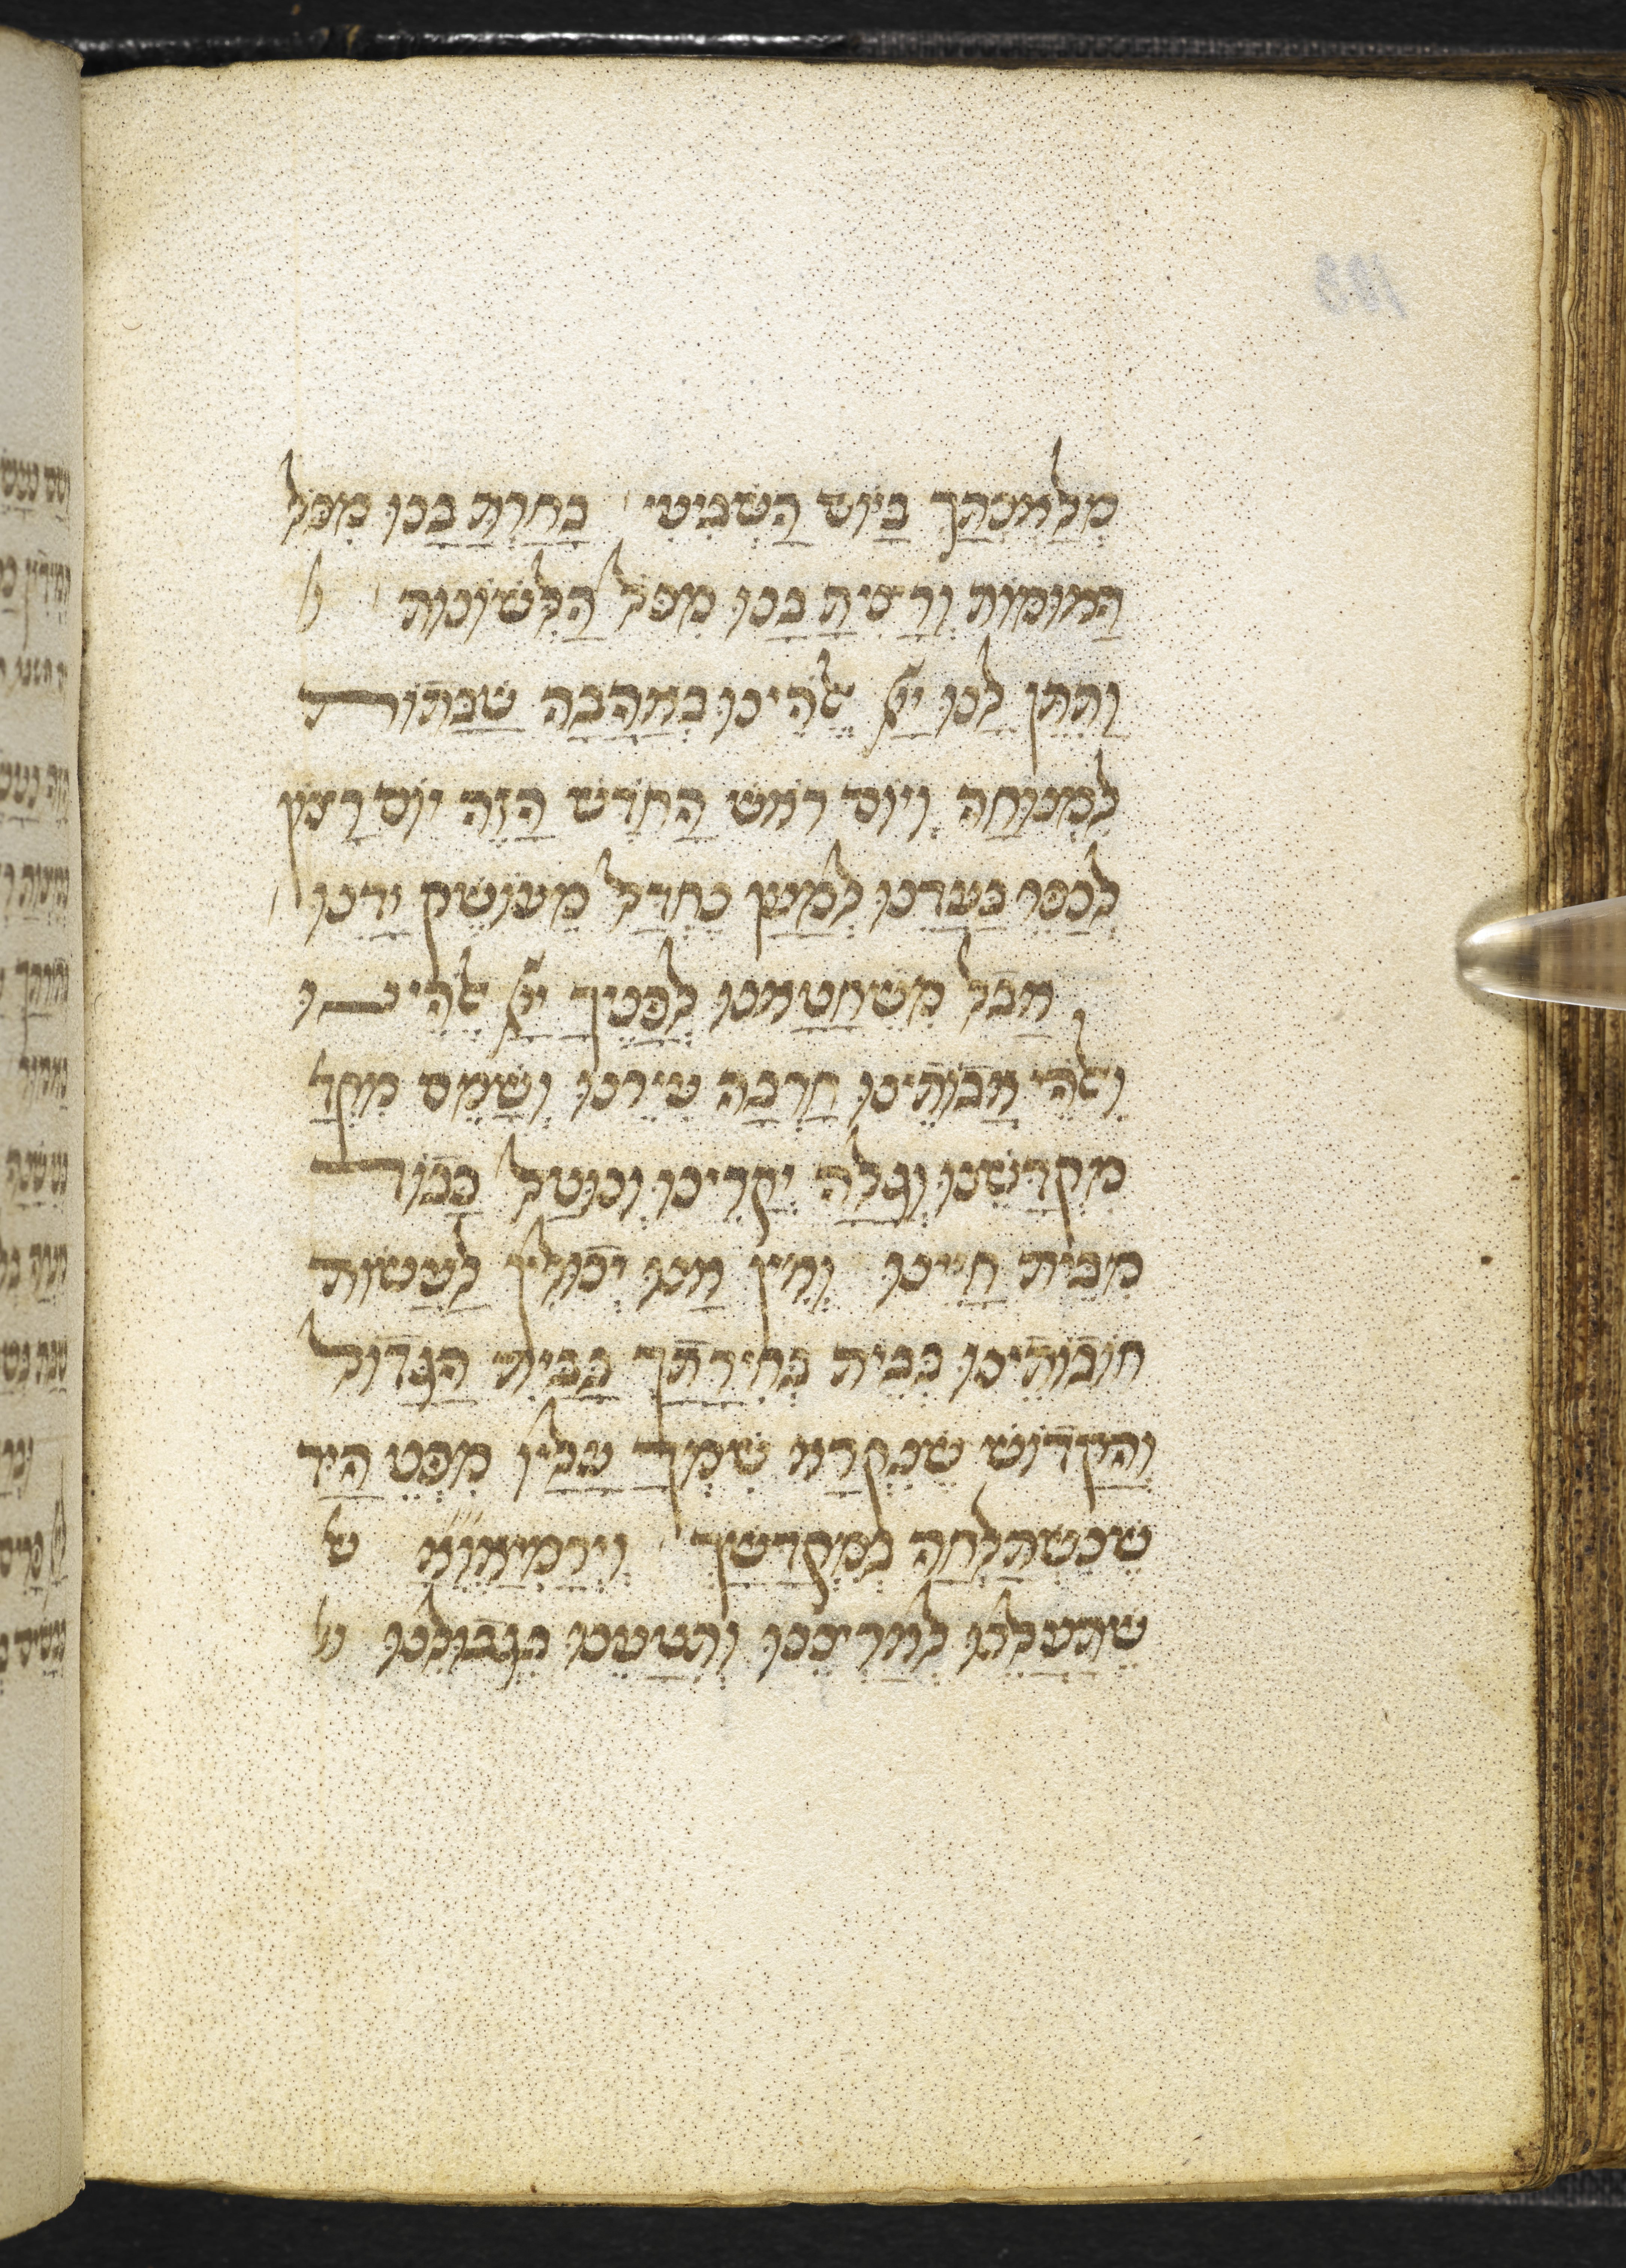 מְלַאכְתַּךָ בַּיּוֹם הַשְּׁבִיעִי בָּחַרְתָּ בָּנוּ מִכֹּל
הָאוּמּוֹת וְרָצִיתָ בָּנוּ מִכֹּל הַלְּשׁוֹנוֹת
וַתִּתֵּן לָנוּ יָיָ אֱלֹהֵינוּ בְּאַהֲבָה שַׁבָּתוֹת
לִמְנוּחָה וְיוֹם רֹאשׁ הַחֹדֶשׁ הַזֶּה יוֹם רָצוֹן
לְכַפֵּר בַּעֲדֵנוּ לְמַעַן נֶחְדַּל מֵעוֹשֶׁק יָדֵנוּ
אֲבָל מִשֶּׁחָטָאנוּ לְפָנֶיךָ יָיָ אֱלֹהֵינוּ
וֵאלֹהֵי אֲבוֹתֵינוּ חָרְבָה עִירֵנוּ וְשָׁמֵם
מִקְדָּשֵׁנוּ וְגָלָה יְקָרֵינוּ וְנוּטַּל כָּבוֹד
מִבֵּית חַיֵּינוּ וְאֵין אָנוּ יְכוֹלִין לַעֲשׂוֹת
חוֹבוֹתֵינוּ בְּבֵית בְּחִירָתָךְ בַּבַּיִת הַגָּדוֹל
וְהַקָּדוֹשׁ שֶׁנִּקְרָא שִׁמְךָ עָלָיו מִפְּנֵי הַיָּד
שֶׁנִּשְׁתַּלְּחָה בְּמִקְדָּשָׁךְ
שֶׁתַּעֲלֵנוּ לְאַרְצֵנוּ וְתִטָּעֵנוּ בִּגְבוּלֵנוּ